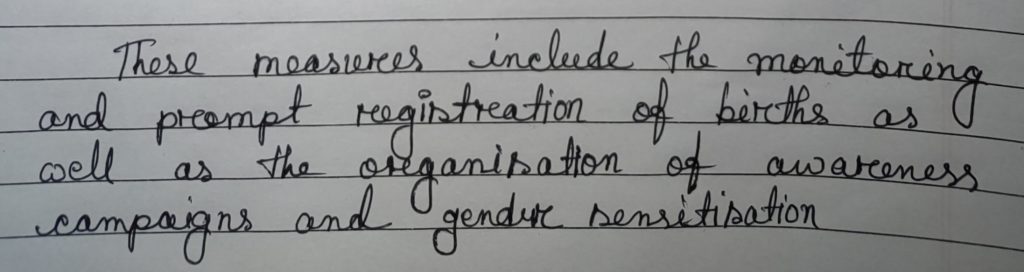 These measures include the monitoring
and prompt registration of births as
well as the organisation of awareness
campaigns and gender sensitisation